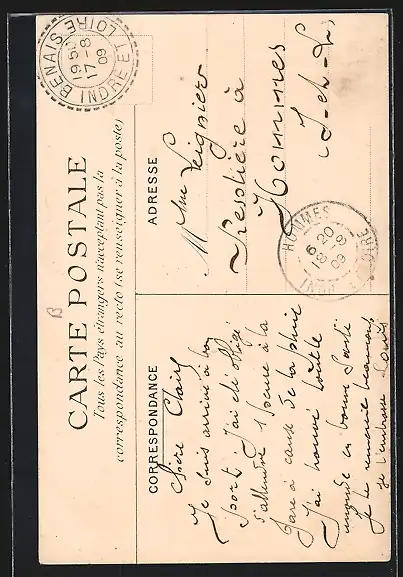 CARTE POSTALE
Tous les Pays étrangers n'acceptant pas la
correspondance au recto (se renseigner à la poste)
B
BENAIS INDRE ET LOIRE
19 50
17 - 8
09
CORRESPONDANCE
Chère
Je suis arrivé à bon
port j'ai été obligé
d'attendre 1 heure à la
gare à cause de la pluie
J'ai trouvé toute le
monde en bonne santé
je te remercie beaucoup
je t'embrasse Louis
ADRESSE
Mme
à
Hommes
I-et-L
HOMMES INDRE ET LOIRE
6 20
18 - 8
09